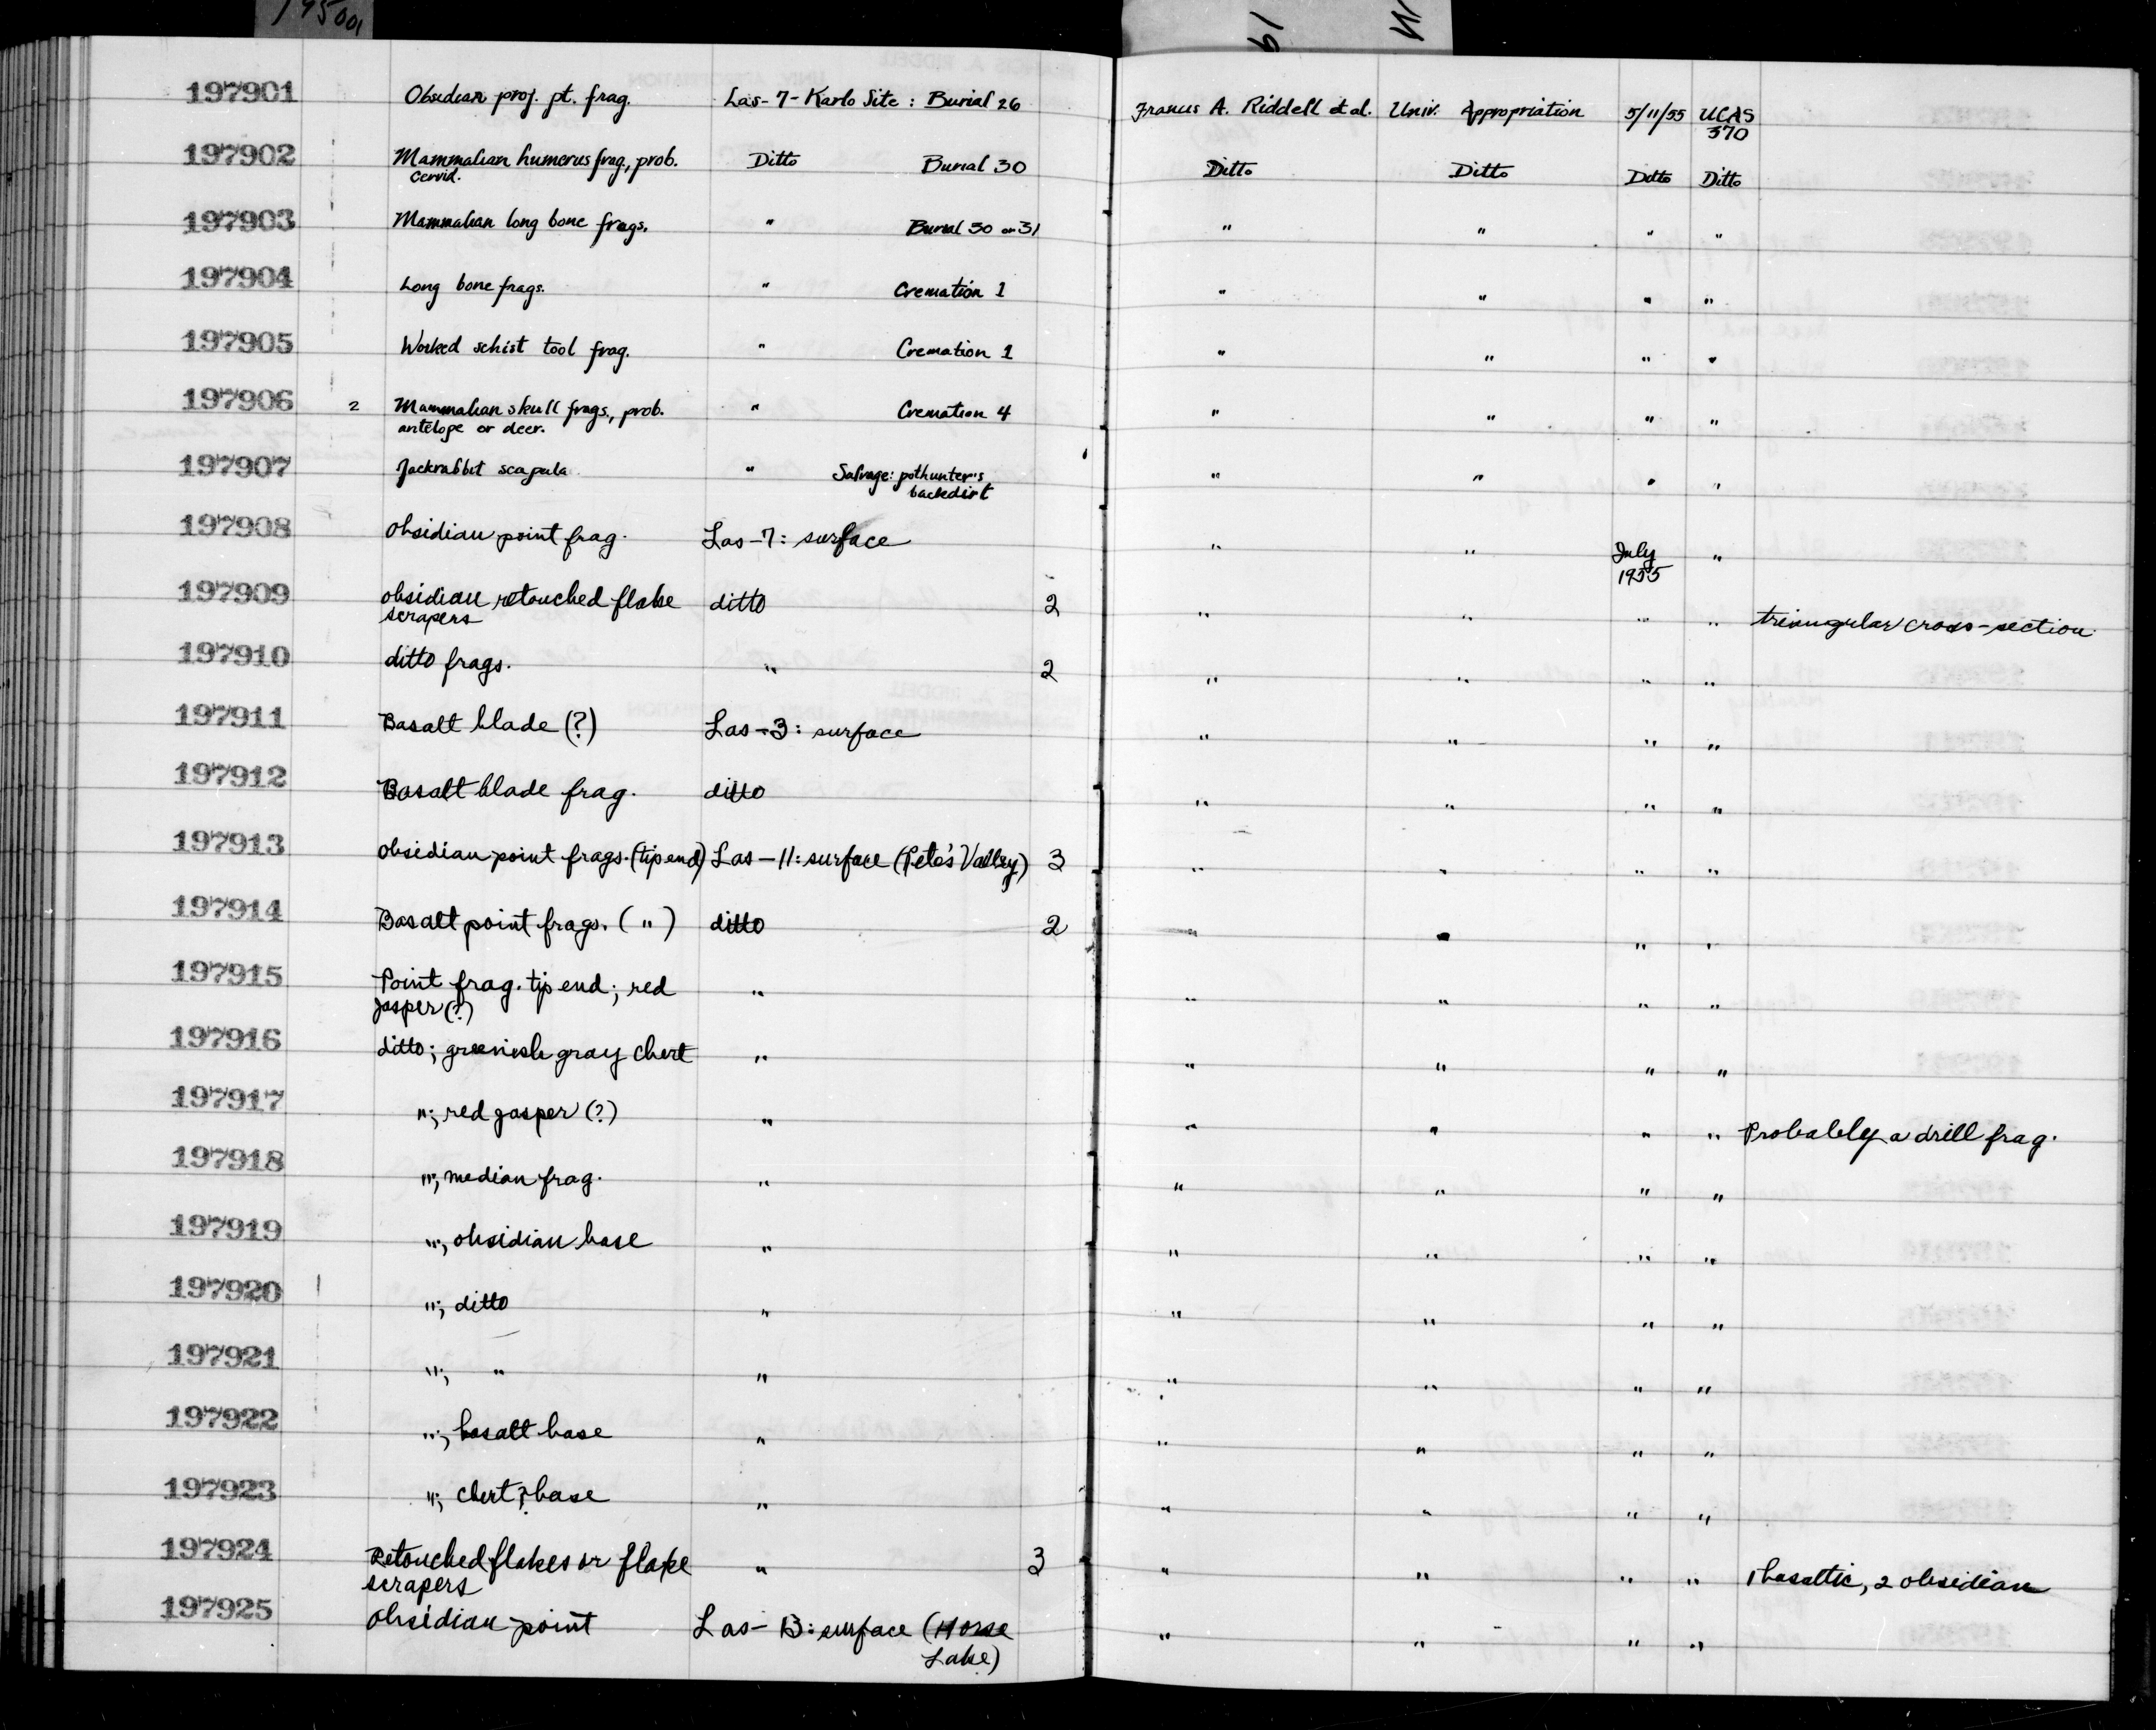 195001
19
197901 Obsidian proj. pt. frag. Las-7-Karlo Site: Burial 26 Francis A. Riddell et al. Univ. Appropriation 5/11/55 UCAS
370
197902 Mammalian humerus frag., prob. Ditto Burial 30 Ditto Ditto Ditto Ditto
cervid.
197903 Mammalian long bone frags. " Burial 30 or 31 " " " "
197904 Long bone frags. " Cremation 1 " " " "
197905 Worked schist tool frag. " Cremation 1 " " " "
197906 2 Mammalian skull frags., prob. " Cremation 4 " " " "
antelope or deer.
197907 Jackrabbit scapula " Salvage: pothunter's " " " "
backdirt
197908 Obsidian point frag. Las-7: surface " " July "
1955
197909 obsidian retouched flake ditto 2 " " " " triangular cross-section
scrapers
197910 ditto frags. " 2 " " " "
197911 Basalt blade (?) Las-3: surface " " " "
197912 Basalt blade frag. ditto " " " "
197913 obsidian point frags. (tip end) Las-11: surface (Pete's Valley) 3 " " " "
197914 Basalt point frags. ( " ) ditto 2 " " " "
197915 Point frag. tip end; red " " " " "
jasper (?)
197916 ditto; greenish gray chert " " " " "
197917 "; red jasper (?) " " " " " Probably a drill frag.
197918 "; median frag. " " " " "
197919 "; obsidian base " " " " "
197920 "; ditto " " " " "
197921 "; " " " " " "
197922 "; basalt base " " " " "
197923 "; chert? base " " " " "
197924 Retouched flakes or flake " 3 " " " " 1 basaltic, 2 obsidian
scrapers
197925 obsidian point Las-13: surface (Horse " " " "
Lake)